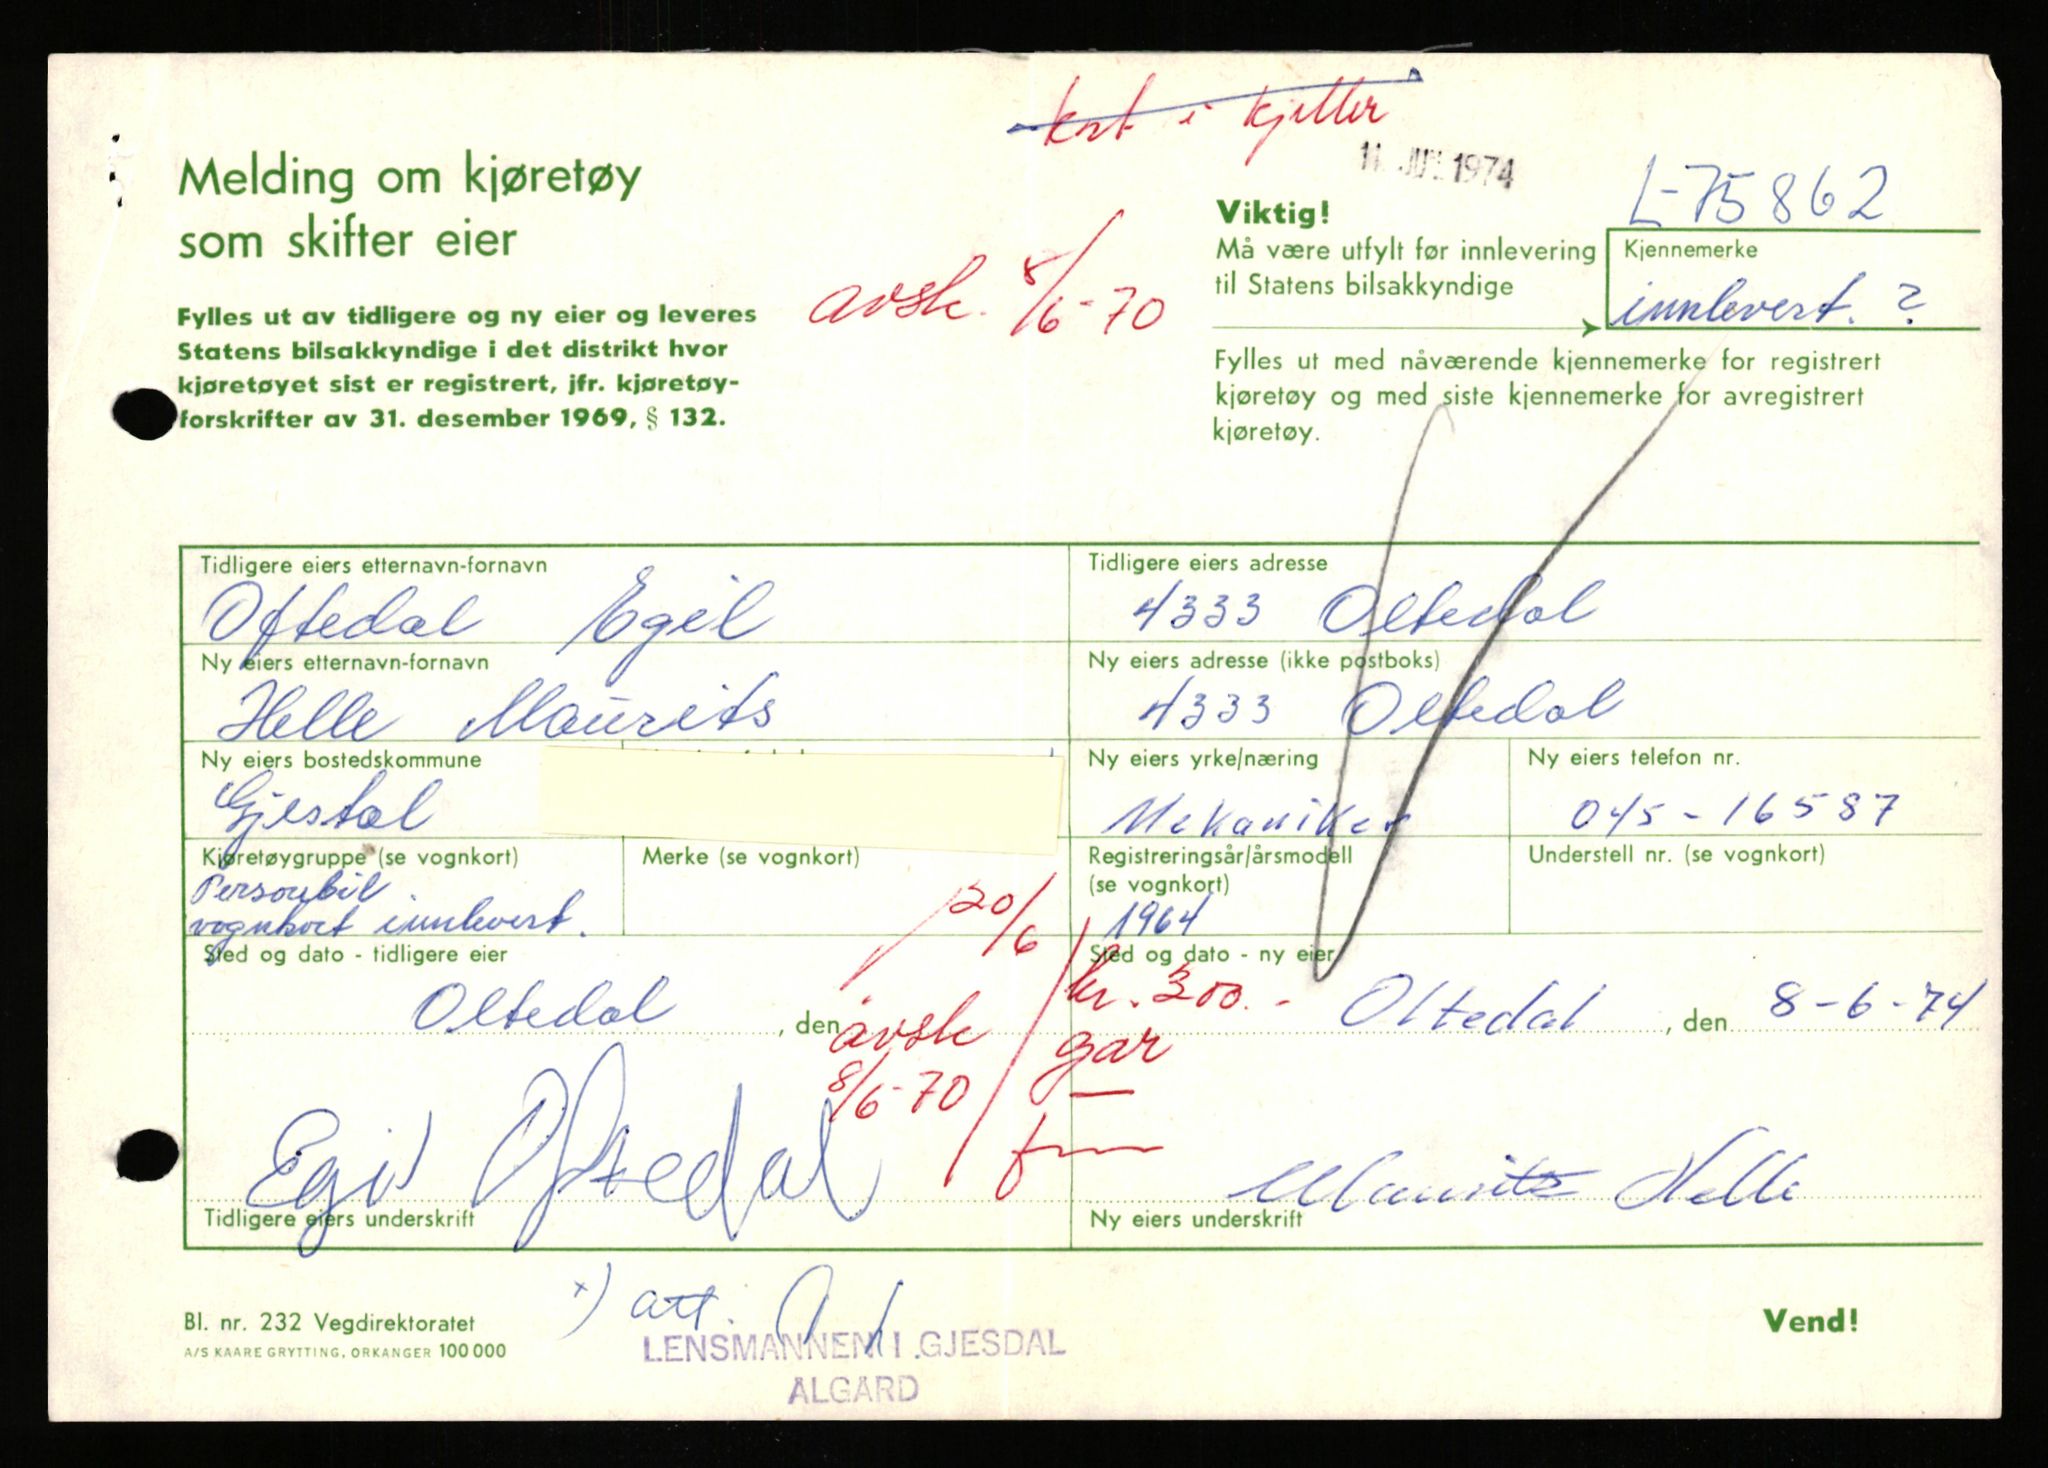 kort i kjeller
11. JUN. 1974
L-75862
Melding om kjøretøy
som skifter eier
Viktig!
Må være utfylt før innlevering
til Statens bilsakkyndige
Kjennemerke
innlevert. ?
avsk. 8/6-70
Fylles ut av tidligere og ny eier og leveres
Statens bilsakkyndige i det distrikt hvor
kjøretøyet sist er registrert, jfr. kjøretøy-
forskrifter av 31. desember 1969, § 132.
Fylles ut med nåværende kjennemerke for registrert
kjøretøy og med siste kjennemerke for avregistrert
kjøretøy.
Tidligere eiers etternavn-fornavn
Oftedal Egil
Tidligere eiers adresse
4333 Oltedal
Ny eiers etternavn-fornavn
Helle Maurits
Ny eiers adresse (ikke postboks)
4333 Oltedal
Ny eiers bostedskommune
Gjestal
Ny eiers yrke/næring
Mekaniker
Ny eiers telefon nr.
045-16587
Kjøretøygruppe (se vognkort)
Personbil
vognkort innlevert.
Merke (se vognkort)
Registreringsår/årsmodell
(se vognkort)
1964
Understell nr. (se vognkort)
20/6
Sted og dato - tidligere eier
Oltedal , den
avsk
8/6-70
kr. 300.-
gar
Sted og dato - ny eier
Oltedal , den 8-6-74
Egil Oftedal
Tidligere eiers underskrift
Maurits Helle
Ny eiers underskrift
x) att.
Bl. nr. 232 Vegdirektoratet
A/S KAARE GRYTTING, ORKANGER 100 000
LENSMANNEN I GJESDAL
ÅLGÅRD
Vend!